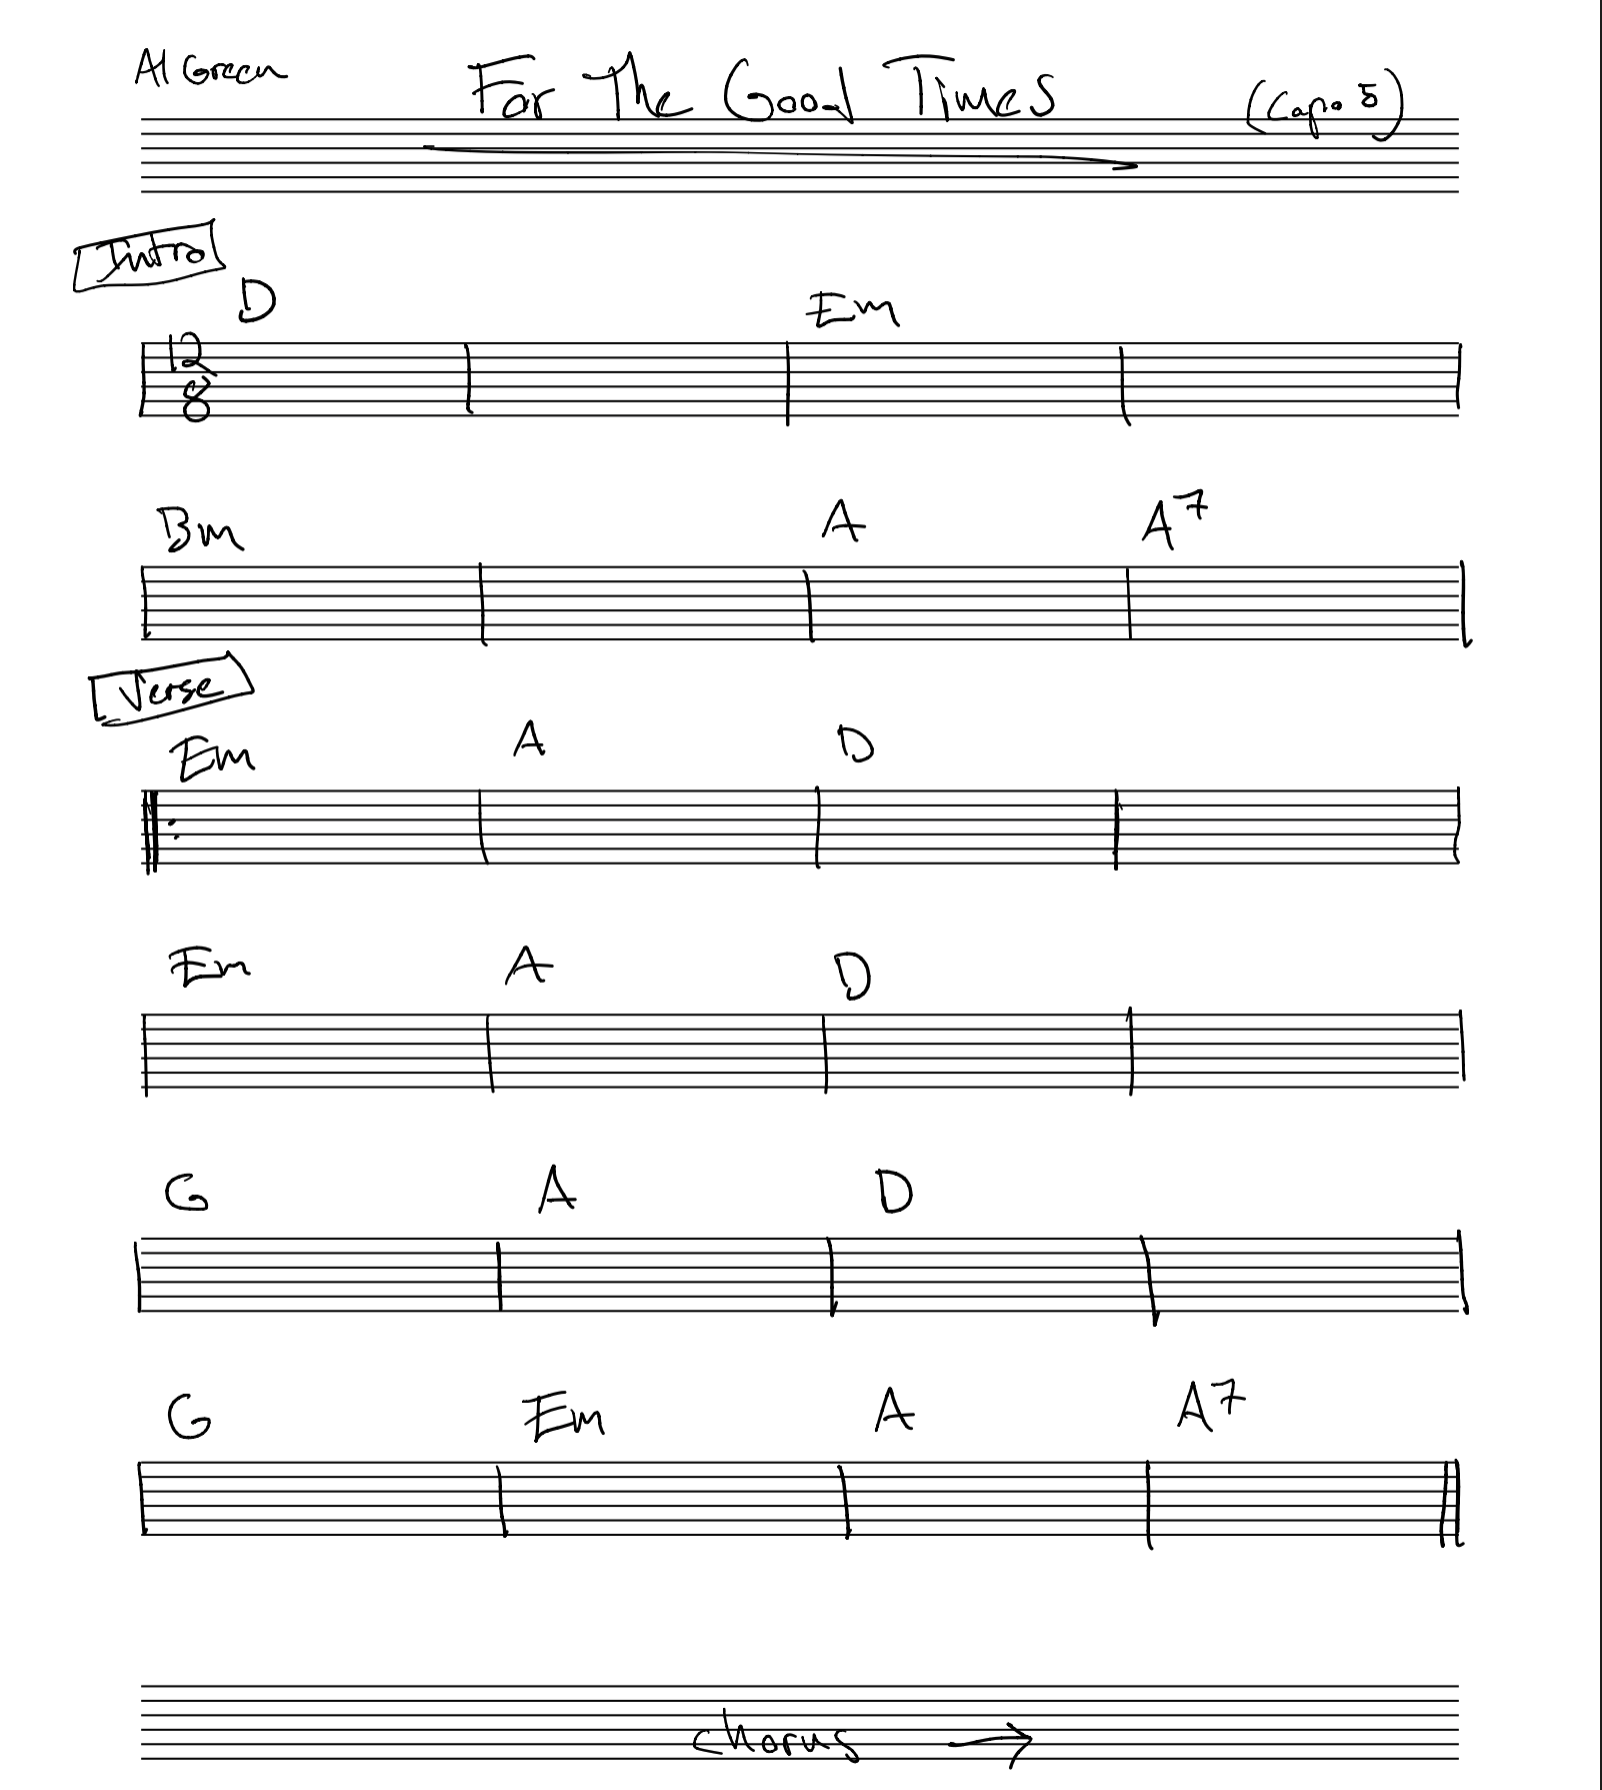 Al Green For The Good Times (Capo 5)
Intro
D Em
12
8
Bm A A7
Verse
Em A D
Em A D
G A D
G Em A A7
chorus →